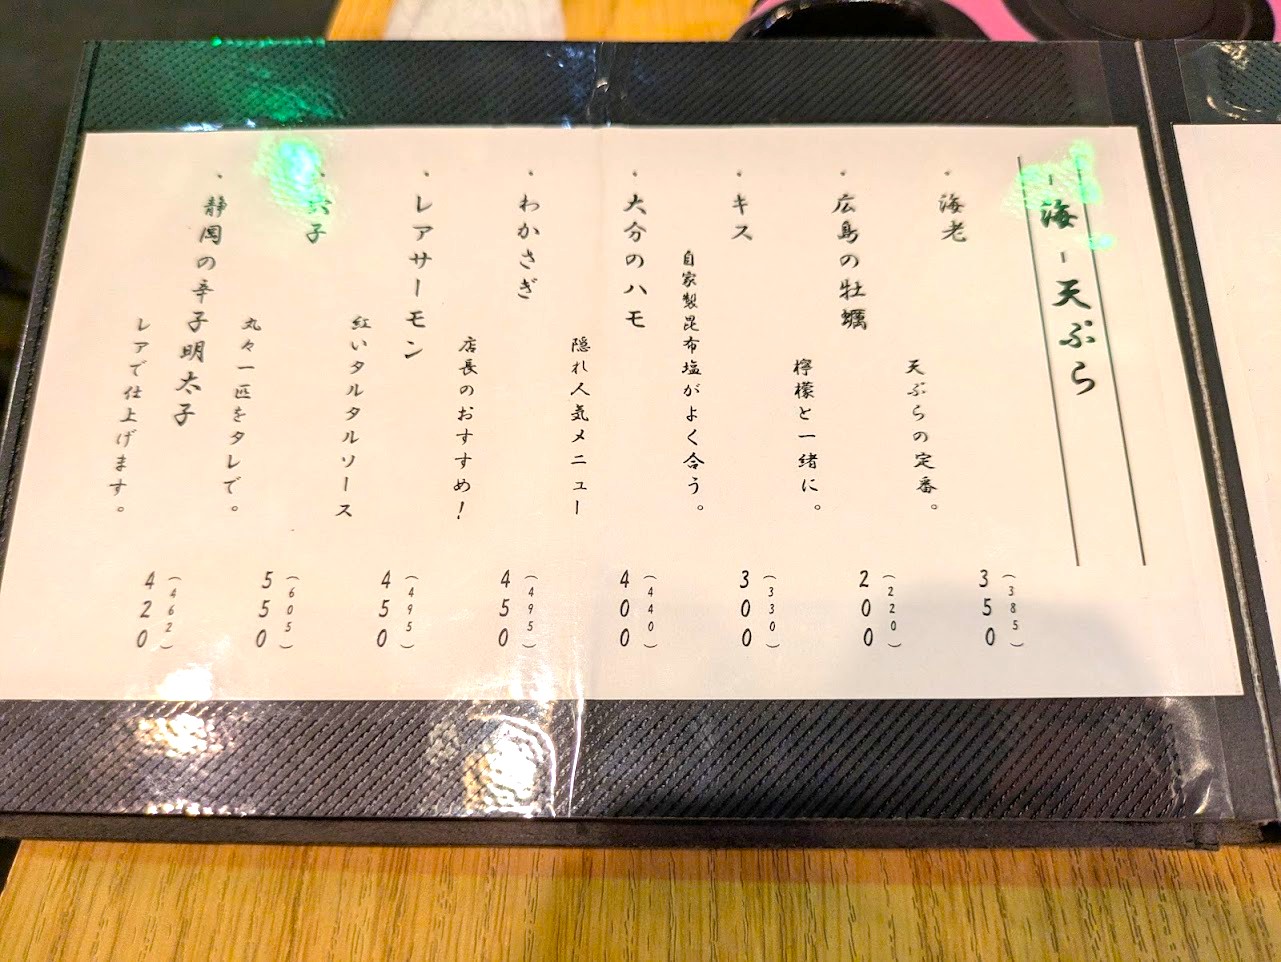 - 海 - 天ぷら
・海老
天ぷらの定番。
350
(385)
・広島の牡蠣
檸檬と一緒に。
200
(220)
・キス
自家製昆布塩がよく合う。
300
(330)
・大分のハモ
隠れ人気メニュー
400
(440)
・わかさぎ
店長のおすすめ!
450
(495)
・レアサーモン
紅いタルタルソース
450
(495)
・穴子
丸々一匹をタレで。
550
(605)
・静岡の辛子明太子
レアで仕上げます。
420
(462)